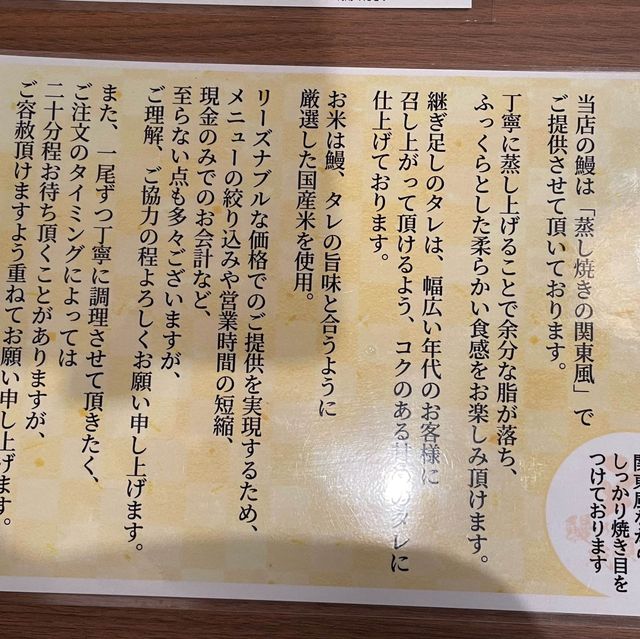 しっかり焼き目を
つけております
当店の鰻は「蒸し焼きの関東風」で
ご提供させて頂いております。
丁寧に蒸し上げることで余分な脂が落ち、
ふっくらとした柔らかい食感をお楽しみ頂けます。
継ぎ足しのタレは、幅広い年代のお客様に
召し上がって頂けるよう、コクのある タレに
仕上げております。
お米は鰻、タレの旨味と合うように
厳選した国産米を使用。
リーズナブルな価格でのご提供を実現するため、
メニューの絞り込みや営業時間の短縮、
現金のみでのお会計など、
至らない点も多々ございますが、
ご理解、ご協力の程よろしくお願い申し上げます。
また、一尾ずつ丁寧に調理させて頂きたく、
ご注文のタイミングによっては
二十分程お待ち頂くことがありますが、
ご容赦頂けますよう重ねてお願い申し上げます。